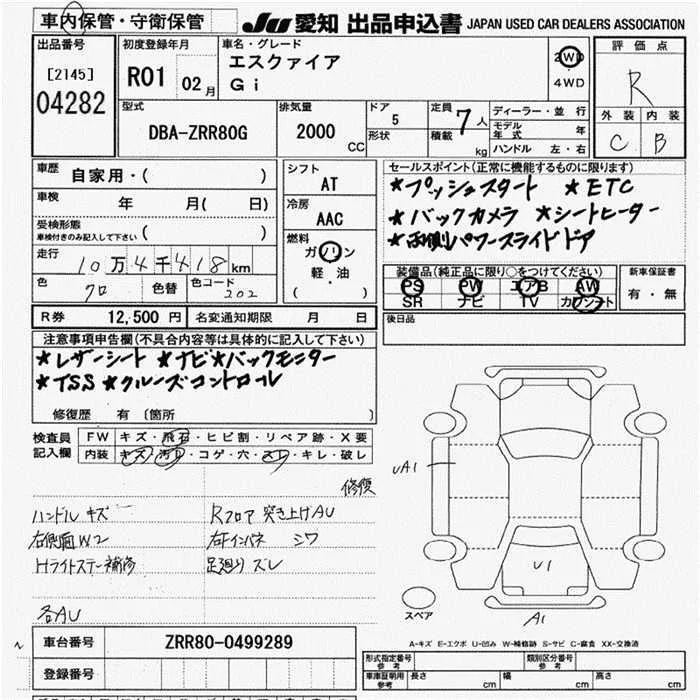 車内保管・守衛保管
JU 愛知 出品申込書 JAPAN USED CAR DEALERS ASSOCIATION
出品番号
[2145]
04282
初度登録年月
R01 02月
車名・グレード
エスクァイア
Gi
2WD
4WD
評価点
R
外装 内装
C B
型式
DBA-ZRR80G
排気量
2000
CC
ドア
5
形状
定員
7人
積載
kg
ディーラー・並行
モデル年式 年
ハンドル 左・右
車歴
自家用・( )
車検
年 月( 日)
受検形態
車検付きのみ記入して下さい ( )
走行
10万4千418km
色
クロ
色替
色コード
202
シフト
AT
冷房
AAC
燃料
ガソリン
軽・油
( )
セールスポイント(正常に機能するものに限ります)
★プッシュスタート ★ETC
★バックカメラ ★シートヒーター
★両側パワースライドドア
装備品(純正品に限り○をつけてください)
PS PW エアB AW
SR ナビ TV カワシート
新車保証書
有・無
R券 12,500円 名変通知期限 月 日
後日品
注意事項申告欄(不具合内容等は具体的に記入して下さい)
★レザーシート ★ナビ★バックモニター
★TSS ★クルーズコントロール
修復歴 有 〔箇所 〕
検査員記入欄
FW キズ・飛石・ヒビ割・リペア跡・X要
内装 キズ・汚れ・コゲ・穴・スレ・キレ・破レ
修復
ハンドル キズ
Rフロア 突き上げAU
右側面W2
右Fインパネ シワ
Hライトステー補修
足廻り ズレ
各AU
UA1
U1
A1
スペア
A-キズ E-エクボ U-凹み W-補修跡 S-サビ C-腐食 XX-交換済
車台番号 ZRR80-0499289
登録番号
形式指定番号 参考
類別区分番号 参考
車庫証明用 参考
長さ cm 幅 cm 高さ cm